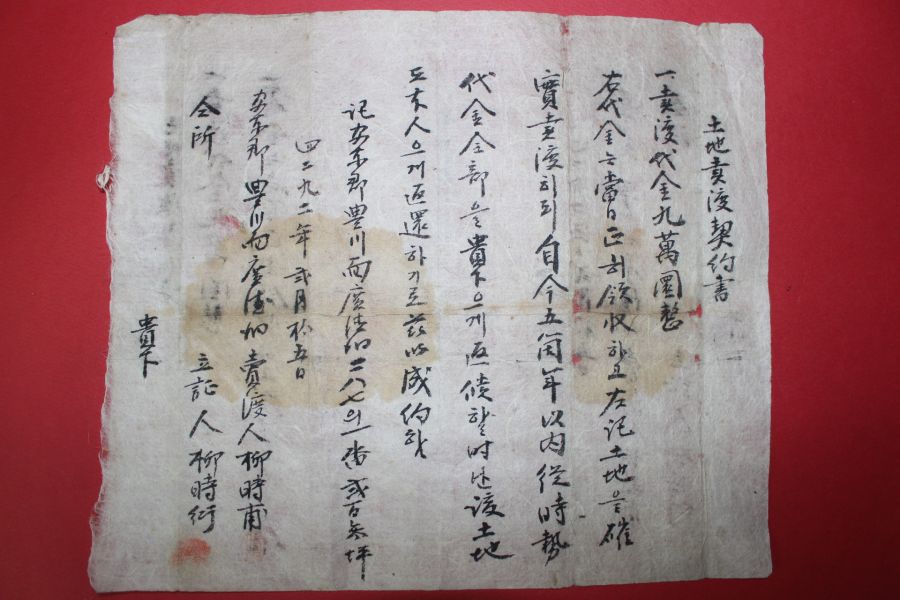 土地賣渡契約書
一. 賣渡代金九萬圜整
右代金는 當日 正히 領收하고 左記土地을 確
實 賣渡하되 自今五箇年以內 從時勢
代金全部을 貴下으게 返償할 時는 該土地
도 本人으게 返還하기로 玆以成約함
記 安東郡豊川面廣德洞 二八七의一番 貳百參坪
四二九二年 貳月拾五日
安東郡豊川面廣德洞 賣渡人 柳時甫
仝所 立証人 柳時衍
貴下